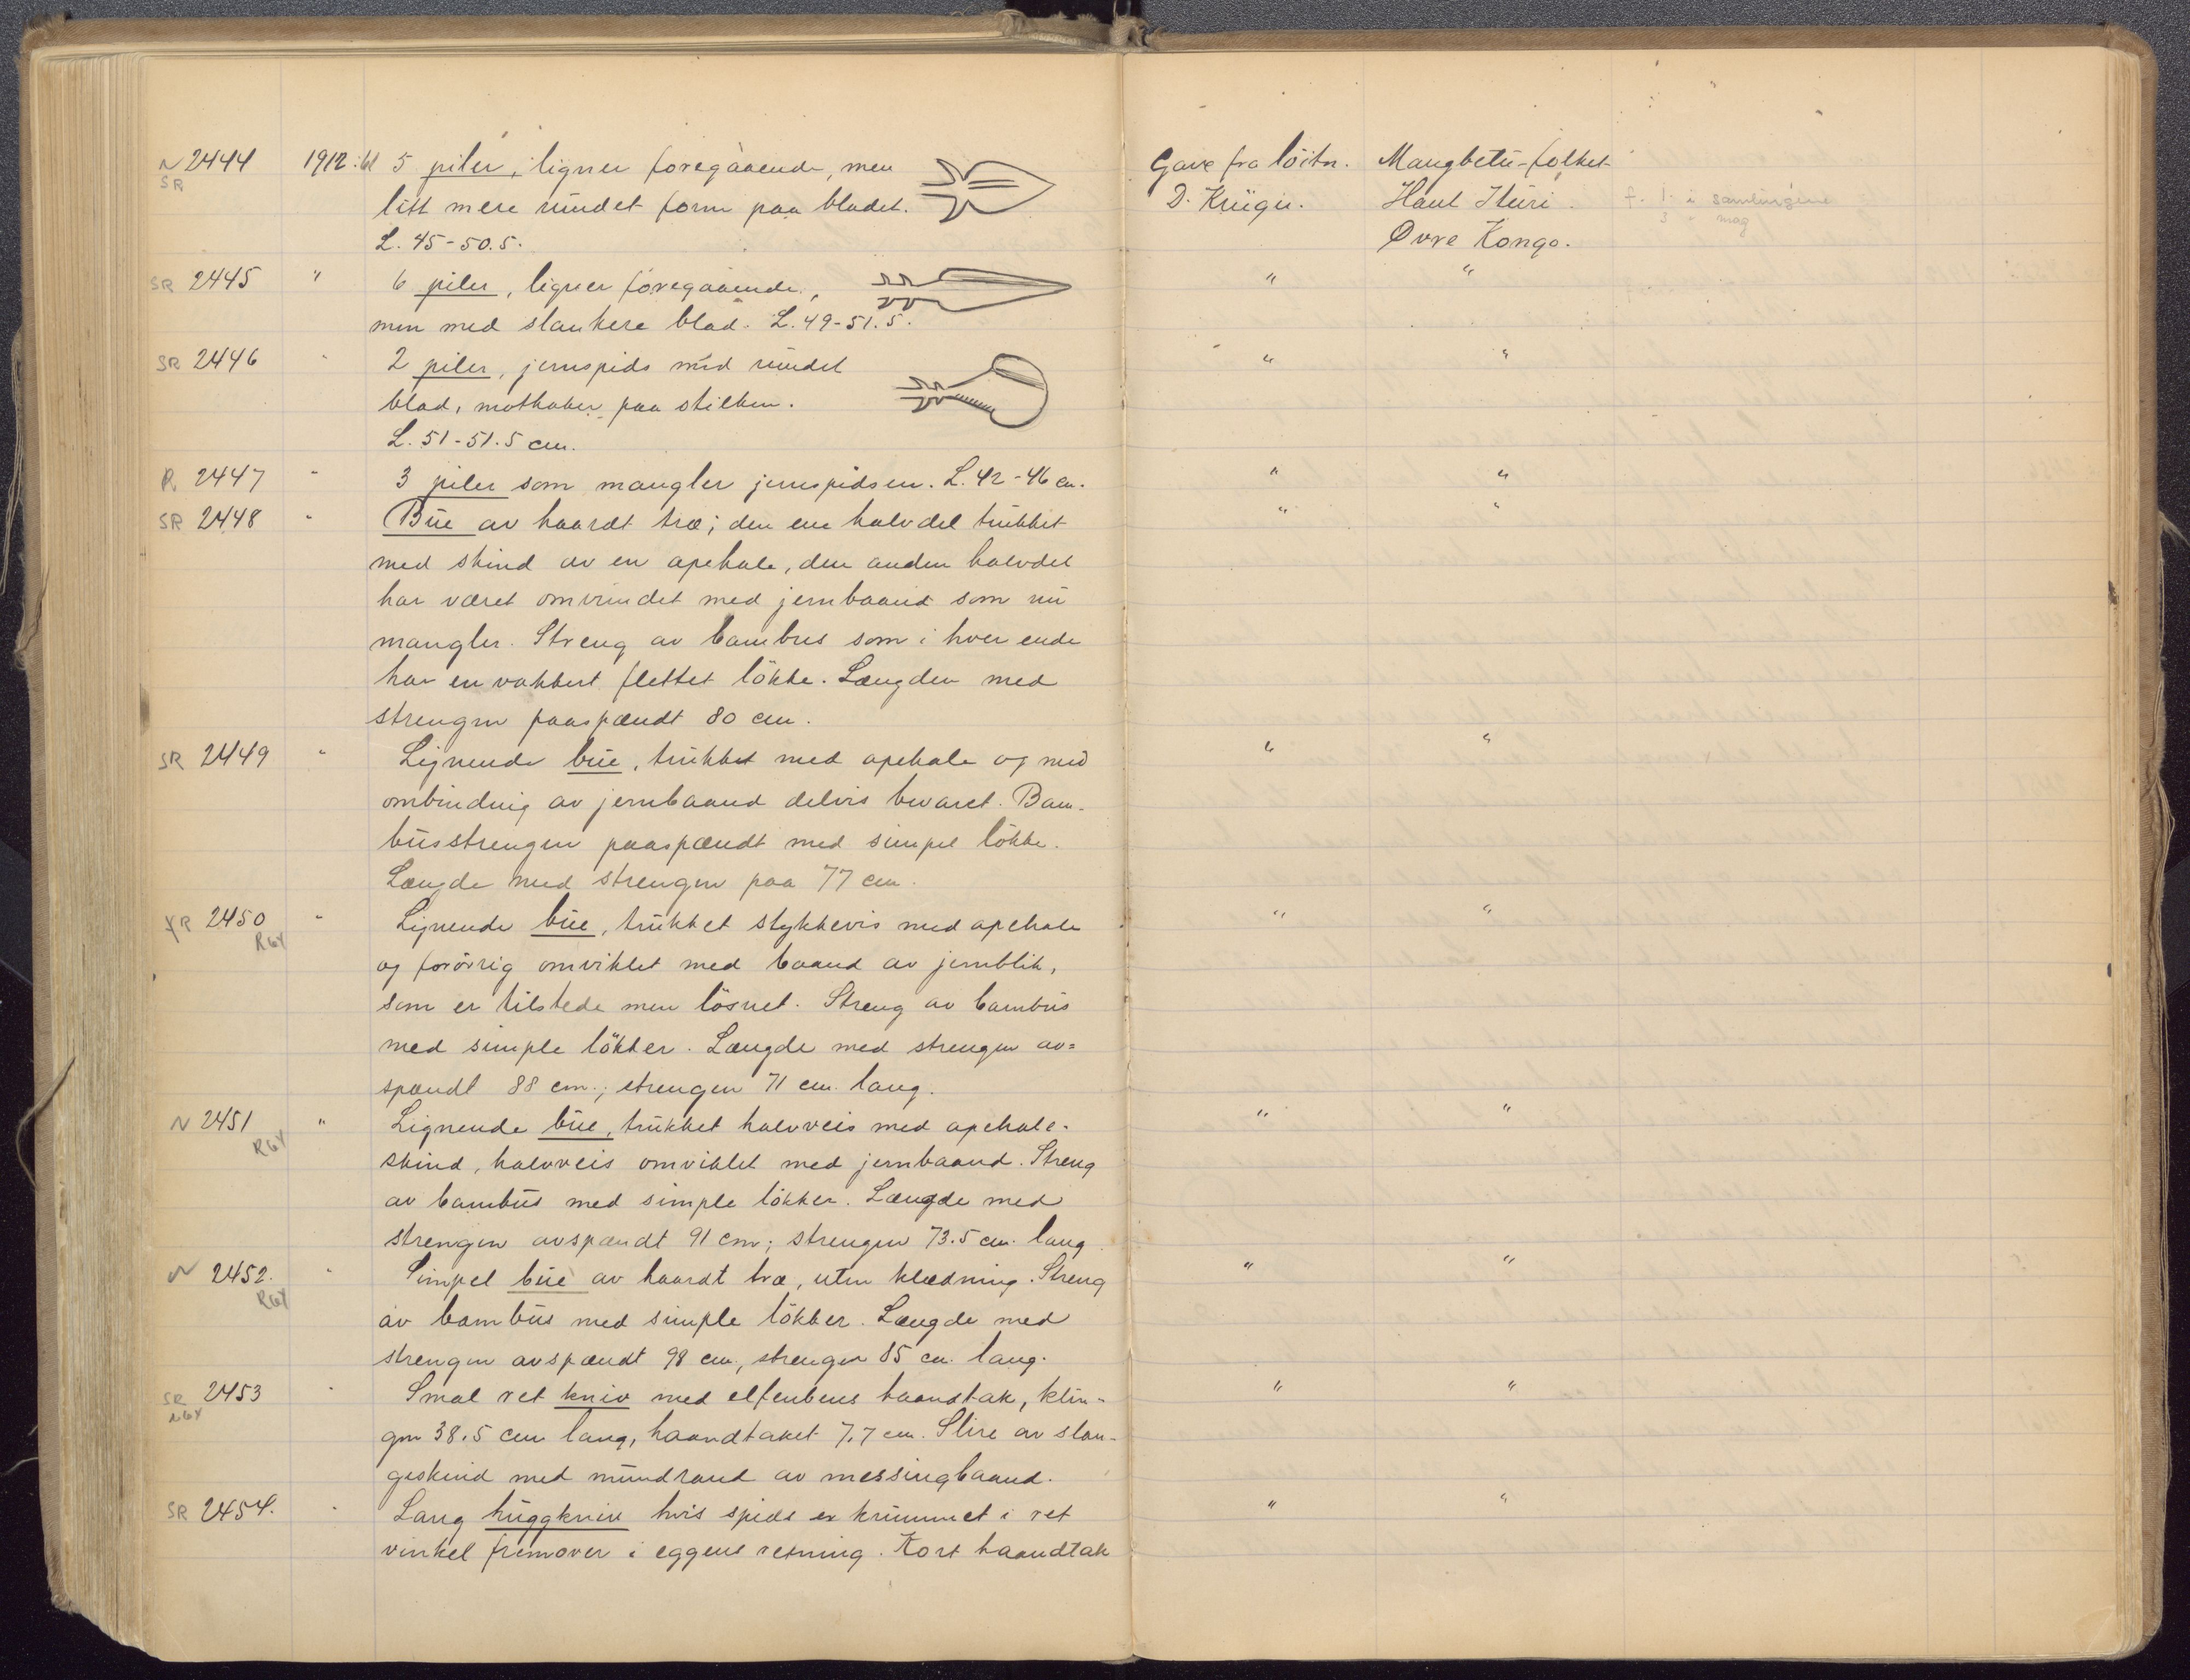 N 2444 1912:61 5 piler, ligner foregaaende, men Gave fra löitn. Mangbetu-folket
SR litt mere rundet form paa bladet. D. Krüger. Haut Ituri. f. 1. i samlingene
3 " mag
L. 45-50.5. Øvre Kongo.
SR 2445 " 6 piler, ligner foregaaende, " "
men med slankere blad. L. 49-51.5.
SR 2446 " 2 piler, jernspids med rundet " "
blad, mothaker paa stilken.
L. 51-51.5 cm.
R 2447 " 3 piler som mangler jernspidsen. L. 42-46 cm. " "
SR 2448 " Bue av haardt træ; den ene halvdel trukket " "
med skind av en apehale, den anden halvdel
har været omvundet med jernbaand som nu
mangler. Streng av bambus som i hver ende
har en vakkert flettet lökke. Længden med
strengen paaspændt 80 cm.
SR 2449 " Lignende bue, trukket med apehale og med " "
ombinding av jernbaand delvis bevaret. Bam-
busstrengen paaspændt med simpel lökke.
Længde med strengen paa 77 cm.
R 2450 " Lignende bue, trukket stykkevis med apehale " "
R64 og forövrig omviklet med baand av jernblik,
som er tilstede men lösnet. Streng av bambus
med simple lökker. Længde med strengen av=
spændt 88 cm.; strengen 71 cm. lang.
N 2451 " Lignende bue, trukket halvveis med apehale- " "
R64 skind, halvveis omviklet med jernbaand. Streng
av bambus med simple lökker. Længde med
strengen avspændt 91 cm; strengen 73.5 cm. lang.
N 2452. " Simpel bue av haardt træ, uten klædning. Streng " "
R64 av bambus med simple lökker. Længde med
strengen avspændt 98 cm, strengen 85 cm. lang.
SR 2453 " Smal ret kniv med elfenbens haandtak, klin- " "
R64 gen 38.5 cm lang, haandtaket 7.7 cm. Slire av slan-
geskind med mundrand av messingbaand.
SR 2454. " Lang huggkniv hvis spids er krummet i ret " "
vinkel fremover i eggens retning. Kort haandtak